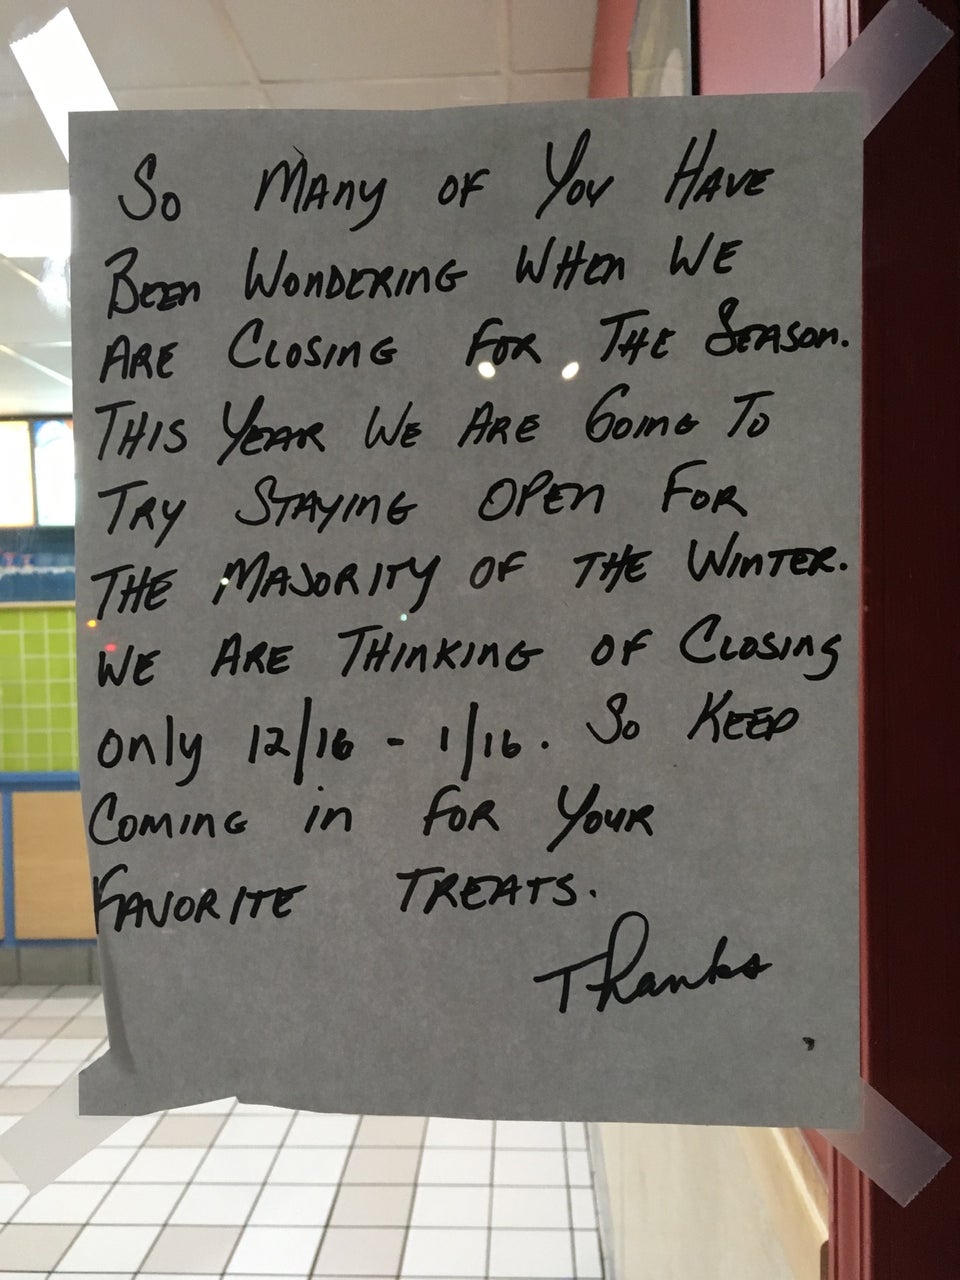 So MANy OF YOU HAVE
BEEn WONDERING WHEn WE
ARE CLOSING FOR THE SEASON.
THIS YEAR WE ARE GOING TO
TRY STAYING OPEn FOR
THE MAJORITY OF THE WINTER.
WE ARE THINKING OF CLOSINg
only 12/16 - 1/16. So KEEP
COMING in FOR YOUR
FAVORITE TREATS.
Thanks